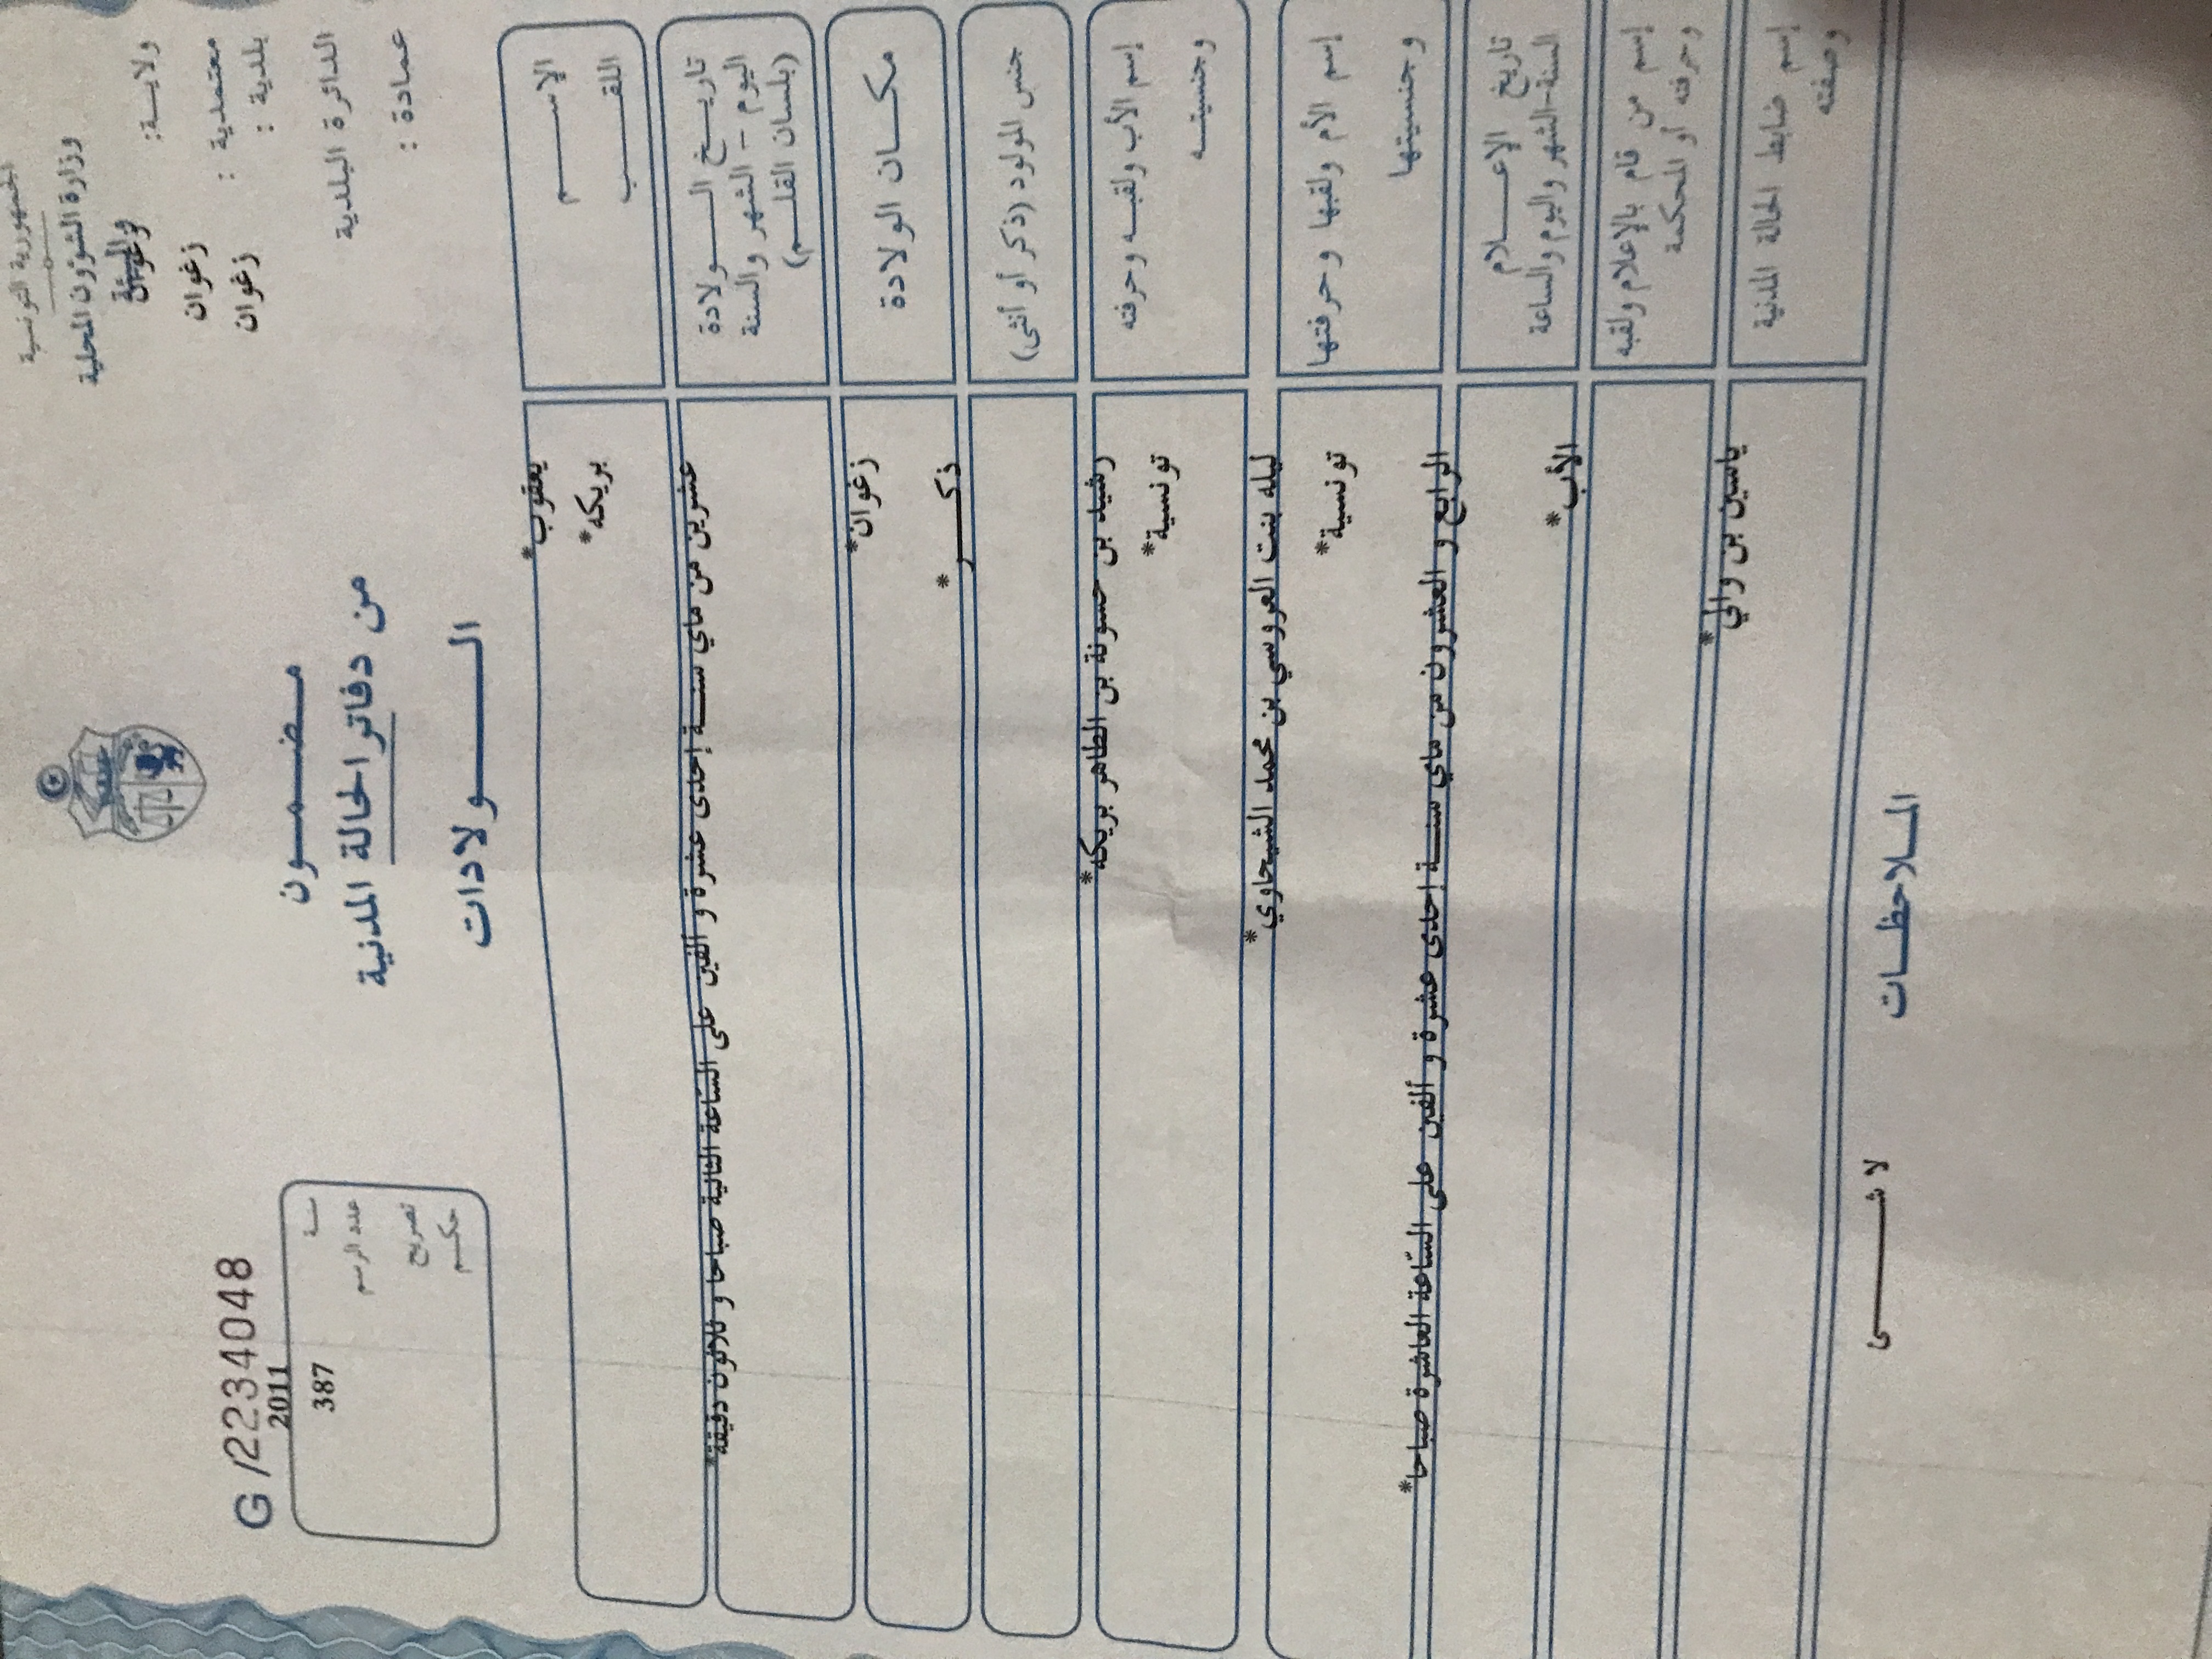 الجمهورية التونسية
وزارة الشؤون المحلية
ولايـة: زغوان
معتمدية : زغوان
بلدية : زغوان
الدائرة البلدية
عمادة :
مـضـمـون
من دفاتر الحالة المدنية
الـــولادات
G /2234048
سنـة 2011
عدد الرسم 387
تصريح
حكـم
الإســـم يعقوب*
اللقـــب بريكه*
تاريـخ الــولادة
اليوم - الشهر والسنة
(بلسان القلـم)
عشرين من ماي سنـة إحدى عشرة و ألفين على السّاعة الثانية صباحا و ثلاثون دقيقة*
مكــان الولادة زغوان*
جنس المولود (ذكر أو أنثى) ذكـــر*
إسم الأب ولقبـه وحرفته رشيد بن حسونة بن الطاهر بريكه*
وجنسيتــه تونسية*
إسم الأم ولقبها وحرفتها ليله بنت العروسي بن محمد الشيحاوي*
وجنسيتها تونسية*
تاريخ الإعـــلام
السنة-الشهر واليوم والساعة
الرابع و العشرون من ماي سنـة إحدى عشرة و ألفين على السّاعة العاشرة صباحا*
إسم من قام بالإعلام ولقبه الأب*
وحرفته أو المحكمة
إسم ضابط الحالة المدنية ياسين بن والي*
وصفته
المـلاحظـات
لا شــــئ